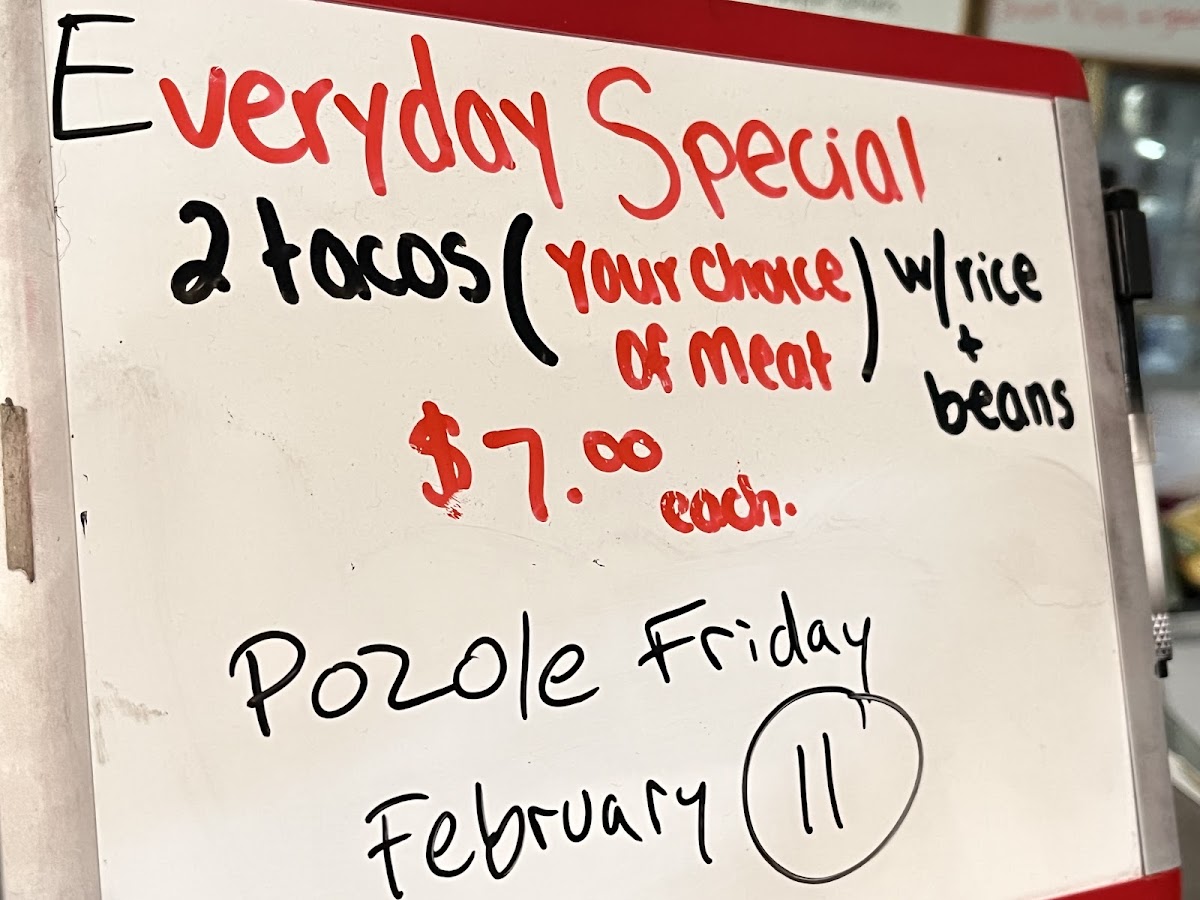 Everyday Special
2 tacos (Your Choice of Meat) w/rice + beans
$7.00 each.
Pozole Friday
February 11